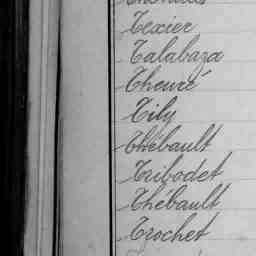 Texier
Talabaza
Theuré
Tily
Thébault
Tribodet
Thébault
Trochet